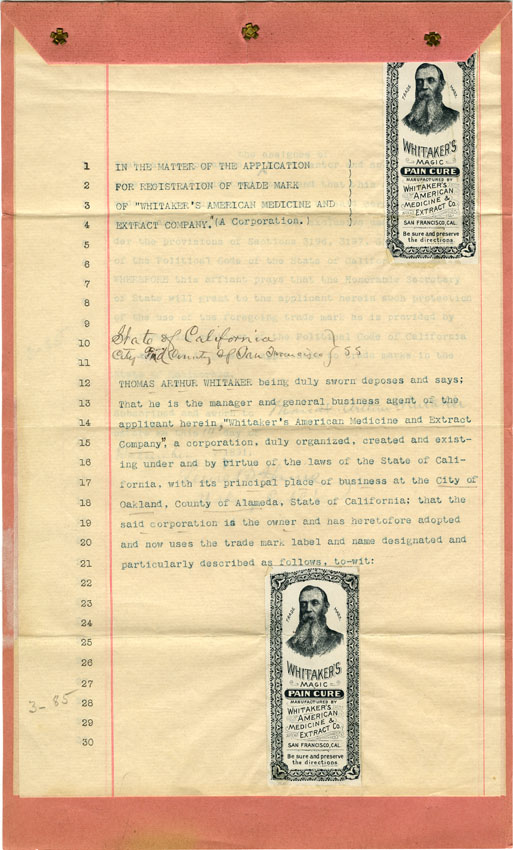 TRADE MARK.
WHITAKER'S
MAGIC
PAIN CURE
MANUFACTURED BY
WHITAKER'S
AMERICAN
MEDICINE &
EXTRACT Co.
SAN FRANCISCO, CAL.
Be sure and preserve
the directions
1 IN THE MATTER OF THE APPLICATION
2 FOR REGISTRATION OF TRADE MARK
3 OF "WHITAKER'S AMERICAN MEDICINE AND
4 EXTRACT COMPANY." (A Corporation.)
5
6
7
8
9
10 State of California
11 City and County of San Francisco } S.S
12 THOMAS ARTHUR WHITAKER being duly sworn deposes and says;
13 That he is the manager and general business agent of the
14 applicant herein, "Whitaker's American Medicine and Extract
15 Company", a corporation, duly organized, created and exist-
16 ing under and by virtue of the laws of the State of Cali-
17 fornia, with its principal place of business at the City of
18 Oakland, County of Alameda, State of California; that the
19 said corporation is the owner and has heretofore adopted
20 and now uses the trade mark label and name designated and
21 particularly described as follows, to-wit:
22
23
24
25
26
27
3-85 28
29
30
TRADE MARK.
WHITAKER'S
MAGIC
PAIN CURE
MANUFACTURED BY
WHITAKER'S
AMERICAN
MEDICINE &
EXTRACT Co.
SAN FRANCISCO, CAL.
Be sure and preserve
the directions